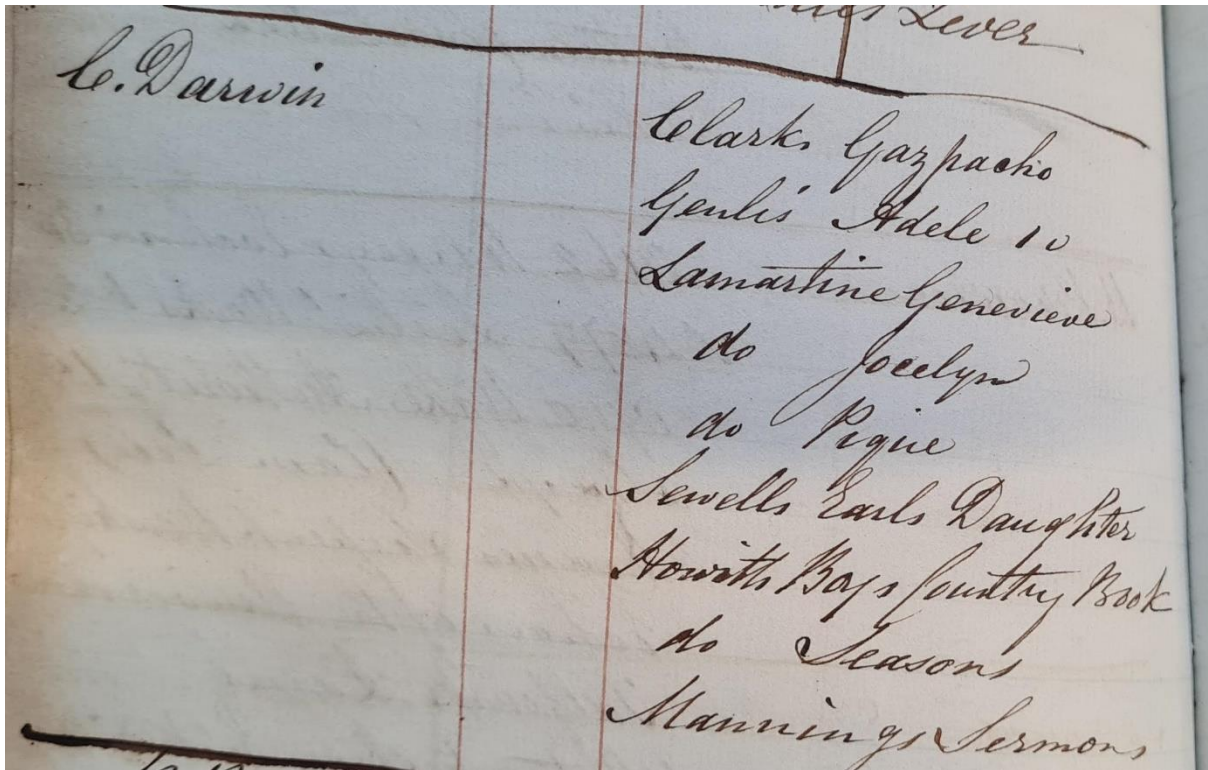 Lever
C. Darwin
Clarks Gazpacho
Genlis Adele 10
Lamartine Genevieve
do Jocelyn
do Pique
Sewells Earls Daughter
Howitts Boys Country Book
do Seasons
Mannings Sermons